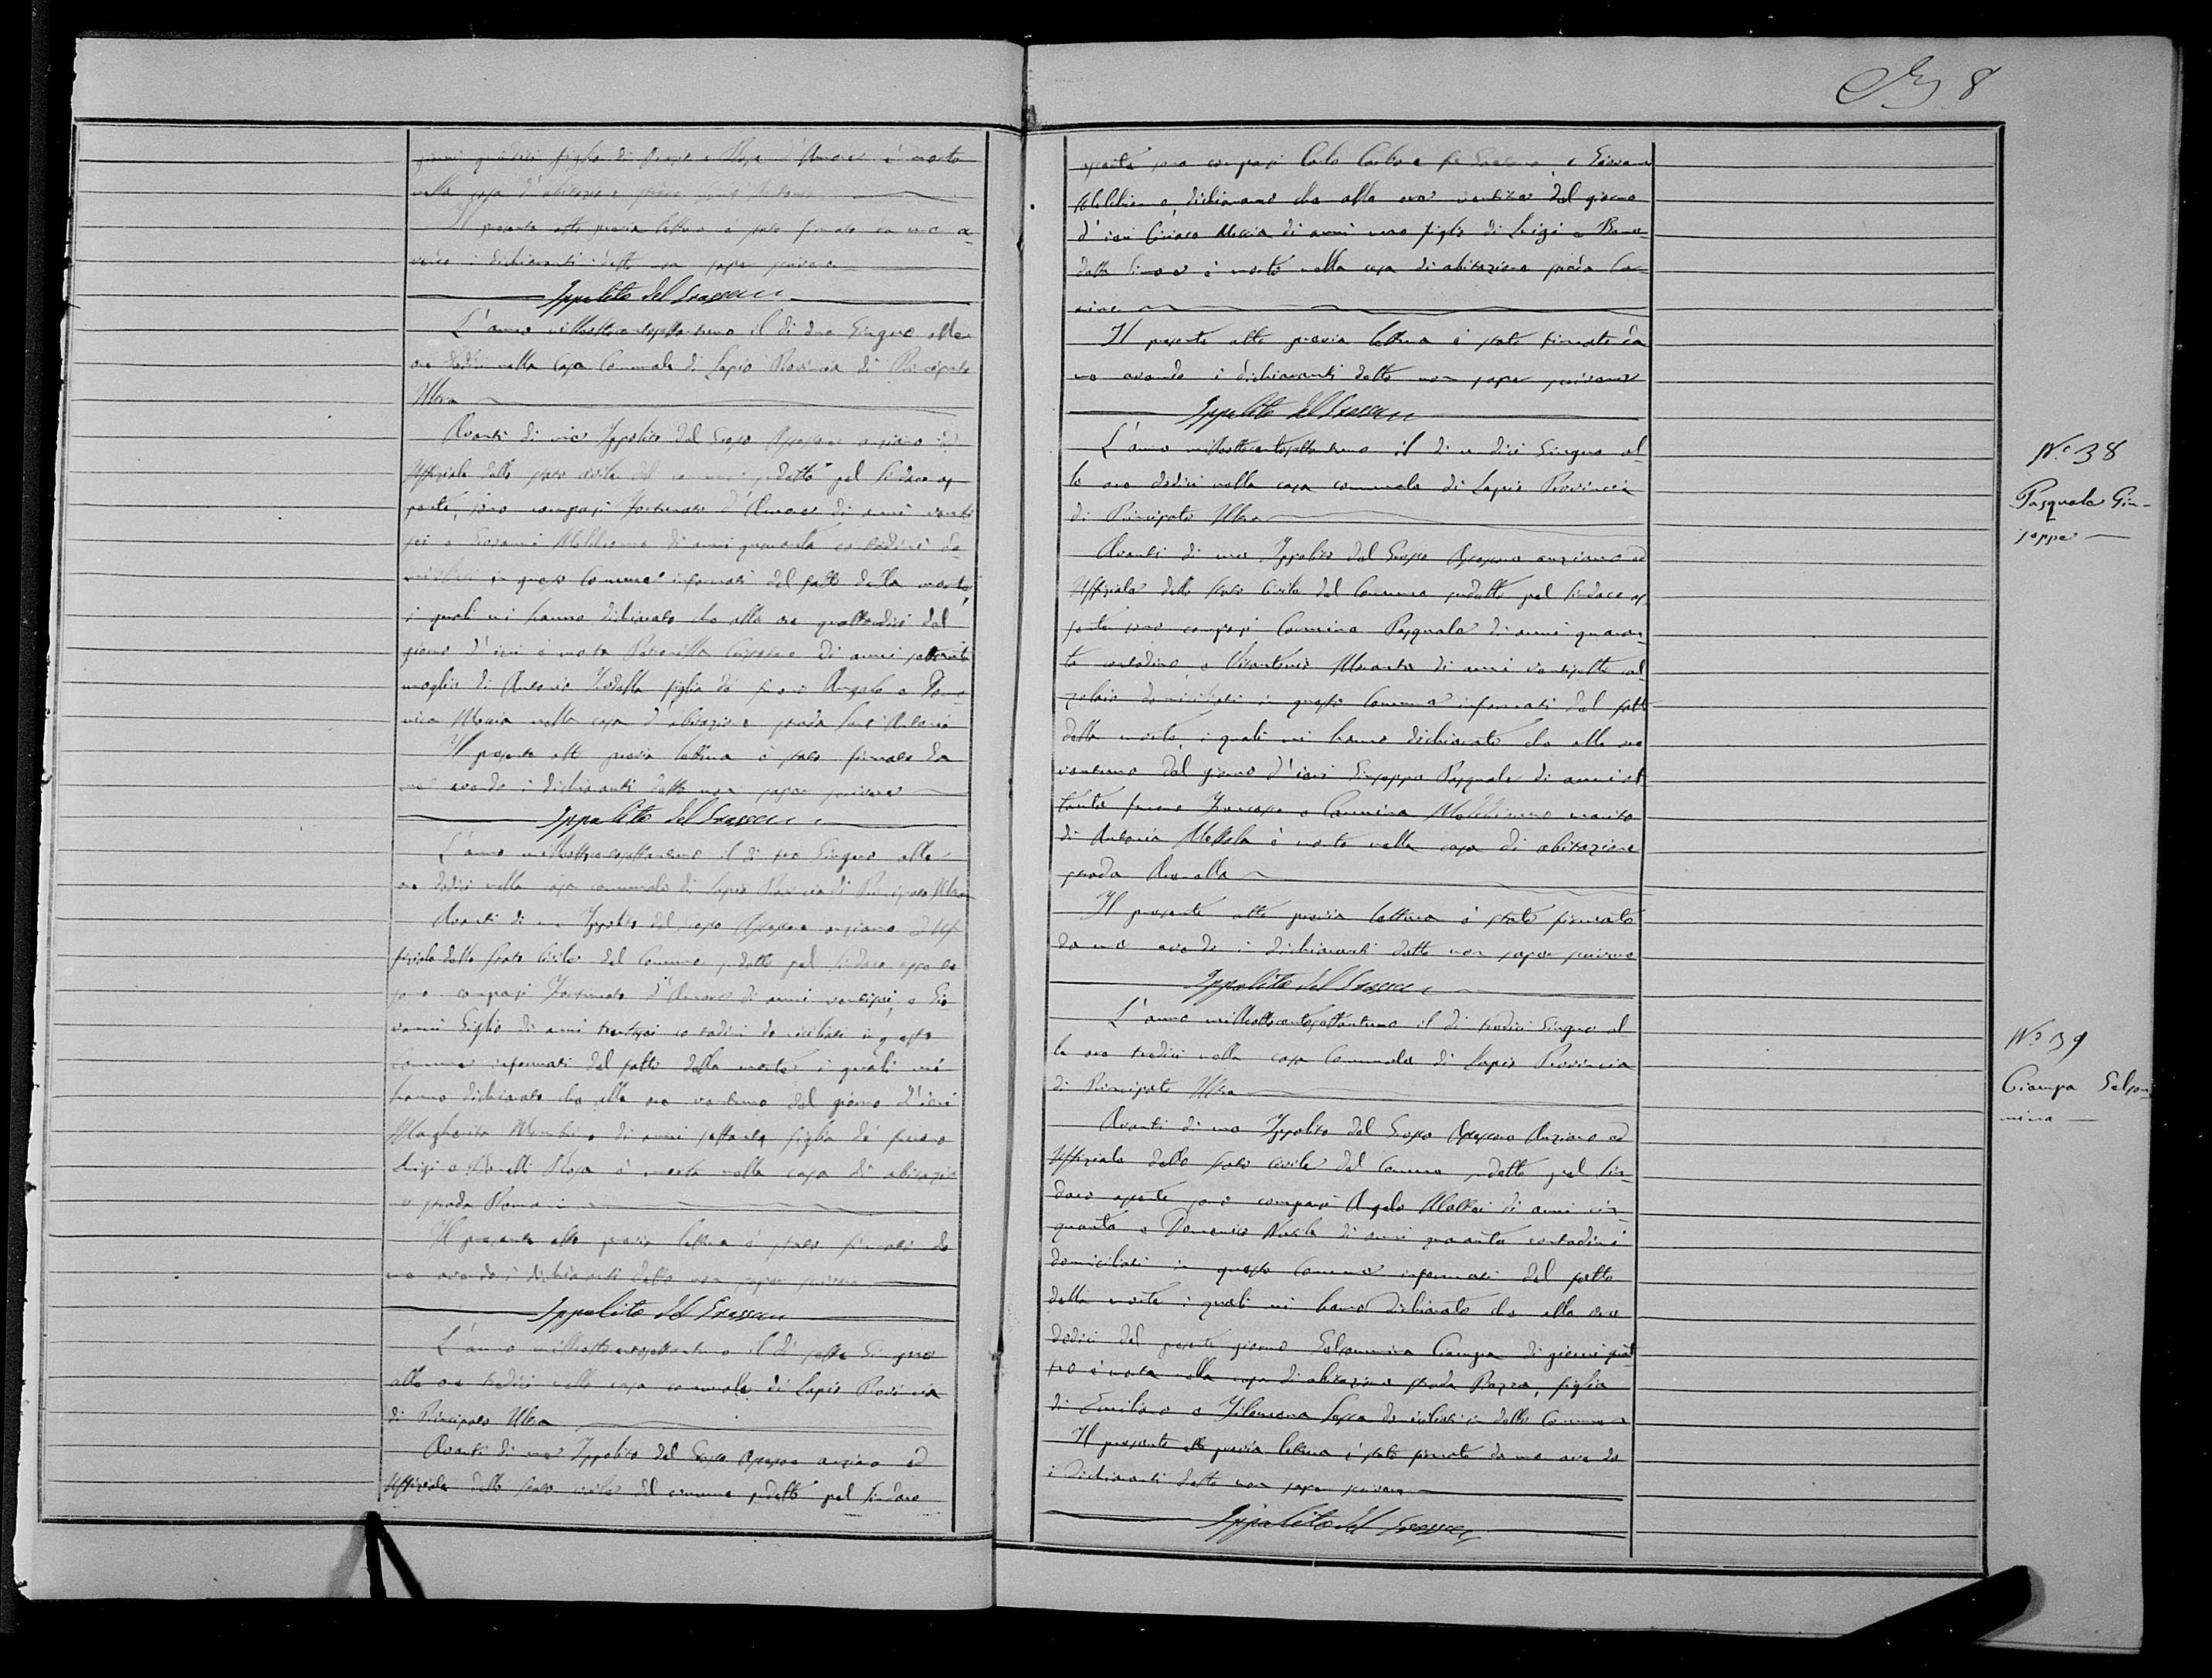 giorni quindici figlio di e Rosa d'Amore è morto
nella casa d'abitazione strada Sant'Antonio
Il presente atto previa lettura è stato firmato da me a-
vendo i dichiaranti detto non saper scrivere
Ippolito del Grosso
L'anno milleottocentosettantuno il dì due Giugno alle
ore dodici nella Casa Comunale di Lapio Provincia di Principato
Ultra
Avanti di me Ippolito del Grosso Assessore anziano ed
Uffiziale dello stato civile del comune sudetto pel Sindaco as-
sente, sono comparsi Fortunato d'Amore di anni venti
sei e Giovanni Melchionno di anni quaranta contadini do-
miciliati in questo Comune informati del fatto della morte,
i quali mi hanno dichiarato che alle ore quattordici del
giorno d'ieri è morta Petronilla di anni settanta
moglie di Antonio figlia de' furono Angelo e Dome-
nica nella casa d'abitazione strada Sant'Antonio
Il presente atto previa lettura è stato firmato da
me avendo i dichiaranti detto non saper scrivere
Ippolito del Grosso
L'anno milleottocentosettantuno il dì tre Giugno alle
ore dodici nella casa comunale di Lapio Provincia di Principato Ultra
Avanti di me Ippolito del Grosso Assessore anziano ed Uf-
fiziale dello stato Civile del Comune sudetto pel Sindaco assente
sono comparsi Fortunato d'Amore di anni ventisei, e Gio-
vanni Giglio di anni trentasei contadini domiciliati in questo
Comune informati del fatto della morte i quali mi
hanno dichiarato che alle ore ventuno del giorno d'ieri
Margherita di anni settanta figlia de' furono
Luigi e Rosa è morta nella casa di abitazio-
ne strada
Il presente atto previa lettura è stato firmato da
me avendo i dichiaranti detto non saper scrivere
Ippolito del Grosso
L'anno milleottocentosettantuno il dì sette Giugno
alle ore tredici nella casa comunale di Lapio Provincia
di Principato Ultra
Avanti di me Ippolito del Grosso Assessore anziano ed
Uffiziale dello stato civile del comune sudetto pel Sindaco
8
assente sono comparsi Carlo Carbone fu Gaetano e Giovanni
Melchionno, dichiarano che alle ore ventitre del giorno
d'ieri Ciriaco di anni uno figlio di Luigi e Bene-
detta è morto nella casa di abitazione strada

Il presente atto previa lettura è stato firmato da
me avendo i dichiaranti detto non saper scrivere
Ippolito del Grosso
L'anno milleottocentosettantuno il dì undici Giugno al-
le ore dodici nella casa comunale di Lapio Provincia
di Principato Ultra
Avanti di me Ippolito del Grosso Assessore anziano ed
Uffiziale dello stato Civile del Comune sudetto pel Sindaco as-
sente sono comparsi Carmine Pasquale di anni quaran-
ta contadino, e di anni ventisette cal-
zolaio domiciliati in questo Comune informati del fatto
della morte, i quali mi hanno dichiarato che alle ore
ventuno del giorno d'ieri Giuseppe Pasquale di anni ot-
tanta furono Francesco e Carmina Melchionno marito
di Antonia è morto nella casa di abitazione
strada
Il presente atto previa lettura è stato firmato
da me avendo i dichiaranti detto non saper scrivere
Ippolito del Grosso
L'anno milleottocentosettantuno il dì tredici Giugno al-
le ore tredici nella casa Comunale di Lapio Provincia
di Principato Ultra
Avanti di me Ippolito del Grosso Assessore Anziano ed
Uffiziale dello stato civile del Comune sudetto pel Sin-
daco assente sono comparsi Angelo di anni cin-
quanta e Domenico di anni quaranta contadini
domiciliati in questo Comune informati del fatto
della morte i quali mi hanno dichiarato che alle ore
dodici del presente giorno Gelsomina Ciampa di giorni quat-
tro è morta nella casa di abitazione strada Piazza, figlia
di Emiliano e Filomena domiciliati in detto Comune
Il presente atto previa lettura è stato firmato da me avendo
i dichiaranti detto non saper scrivere
Ippolito del Grosso
N.° 38
Pasquale Giu-
seppe
N.° 39
Ciampa Gelso-
mina